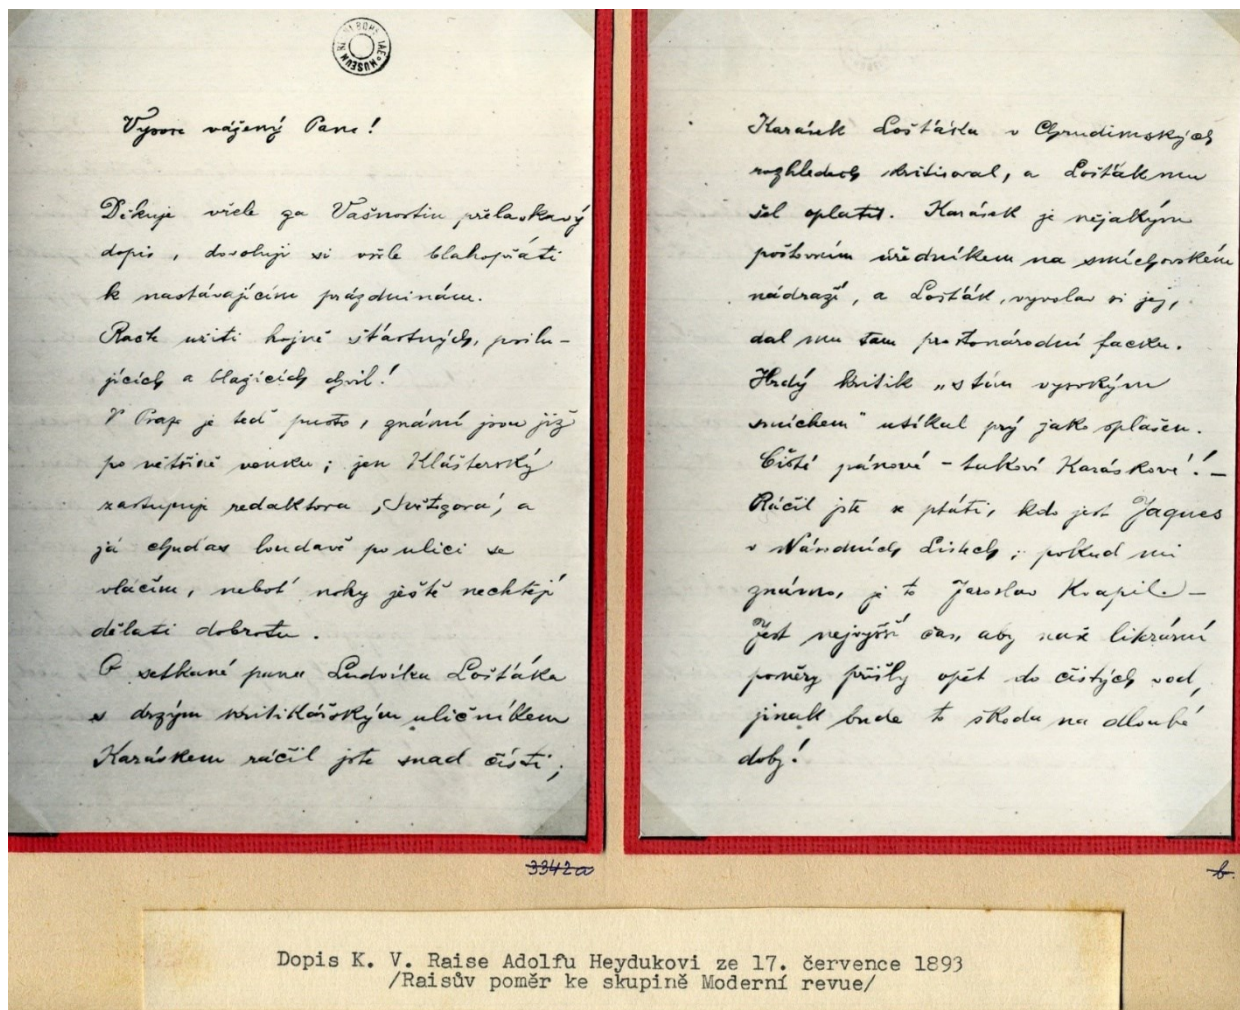 Vysoce vážený Pane!
Děkuje vřele za Vašnostin přelaskavý
dopis, dovoluji si vřele blahopřáti
k nastávajícím prázdninám.
Račte užíti hojně šťastných, posilu-
jících a blažících chvil!
V Praze je teď pusto, známí jsou již
po většině venku; jen Klášterský
zastupuje redaktora „Světozora“, a
já chudas loudavě po ulici se
vláčím, neboť nohy ještě nechtějí
dělati dobrotu.
O setkání pana Ludvíka Lošťáka
s drzým kritikářským uličníkem
Karáskem ráčil jste snad čísti;
Karásek Lošťáka v Chrudimských
rozhledech kritisoval, a Lošťák mu
šel oplatit. Karásek je nějakým
poštovním úředníkem na smíchovském
nádraží, a Lošťák, vyvolav si jej,
dal mu tam prostonárodní facku.
Hrdý kritik „s tím vysokým
smíchem“ utíkal prý jako splašen.
Čistí pánové – takoví Karáskové! –
Ráčil jste se ptáti, kdo jest Jaques
v Národních Listech; pokud mi
známo, je to Jaroslav Kvapil –
Jest nejvyšší čas, aby naše literární
poměry přišly opět do čistých vod,
jinak bude to škoda na dlouhé
doby!
3342a
b.
Dopis K. V. Raise Adolfu Heydukovi ze 17. července 1893
/Raisův poměr ke skupině Moderní revue/